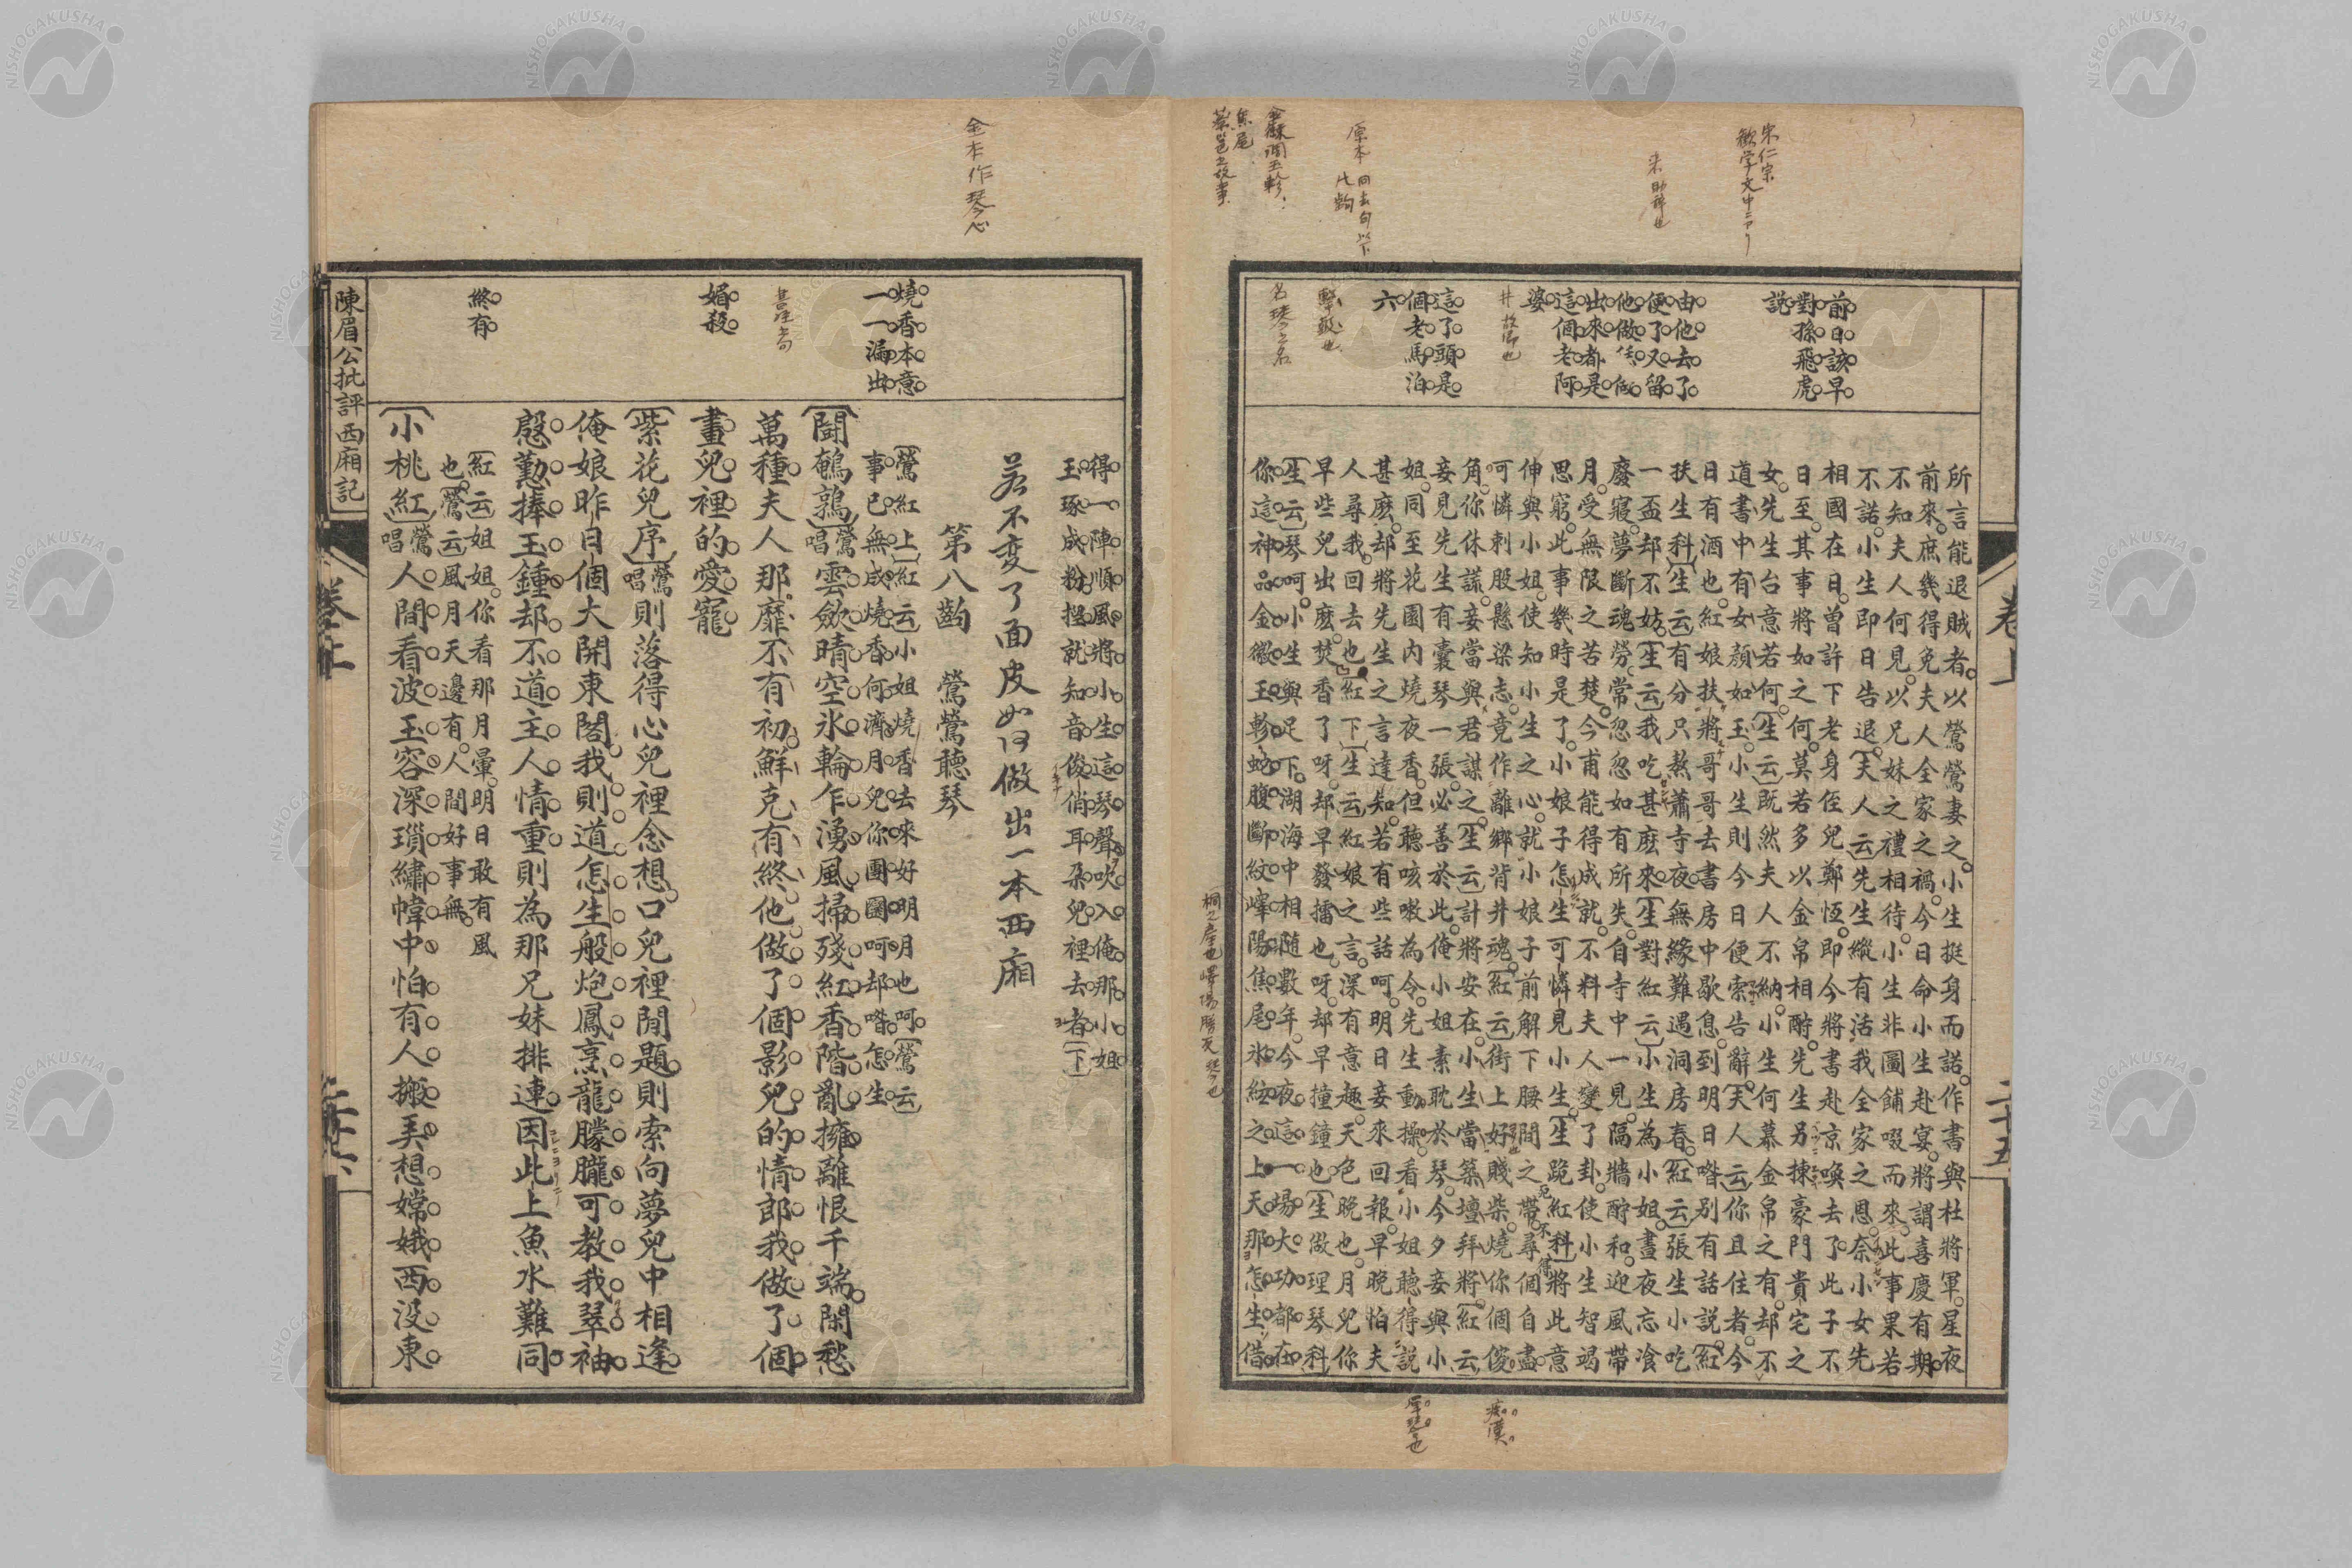 宋仁宗
勧学文中ニアリ
来助辞也
原本
同去句以下
焦尾
前日該早
對孫飛虎
説
由他去了
便了又留
他做
出來都是
這個老阿
婆
這了頭是
個老馬泊
六
井故郷也
名琴之名
卷上
二十五
所言能退賊者以鶯鶯妻之小生挺身而諾作書與杜將軍星夜
前來庶幾得免夫人全家之禍今日命小生赴宴將謂喜慶有期
不知夫人何見以兄妹之禮相待小生非圖餔啜而來此事果若
不諾小生即日告退〔夫人云〕先生縱有活我全家之恩奈小女先
相國在日曾許下老身侄兒鄭恆即今將書赴京喚去了此子不
日至其事將如之何莫若多以金帛相酧先生另揀豪門貴宅之
女先生台意若何〔生云〕既然夫人不納小生何慕金帛之有却不
道書中有女顏如玉小生則今日便索告辭〔夫人云〕你且住者今
日有酒也紅娘扶將哥哥去書房中歇息到明日喒别有話説〔紅
扶生科〕〔生云〕有分只熬蕭寺夜無緣難遇洞房春〔紅云〕張生小吃
一盃却不妨〔生云〕我吃甚麽來〔生對紅云〕小生為小姐晝夜忘飡
廢寢夢斷魂勞常忽忽如有所失自寺中一見隔牆酧和迎風帶
月受無限之苦楚今甫能得成就不料夫人變了卦使小生智竭
思窮此事幾時是了小娘子怎生可憐見小生〔生跪紅科〕將此意
伸與小姐使知小生之心就小娘子前解下腰間之帶尋個自盡
可憐刺股懸梁志竟作離鄉背井魂〔紅云〕街上好賤柴燒你個傻
角你休謊妾當與君謀之〔生云〕計將安在小生當築壇拜將〔紅云
妾見先生有囊琴一張必善於此俺小姐素耽於琴今夕妾與小
姐同至花園内燒夜香但聽咳嗽為令先生動操看小姐聽得説
甚麽却將先生之言達知若有些話呵明日妾來回報早晚怕夫
人尋我回去也〔紅下〕〔生云〕紅娘之言深有意趣天色晚也月兒你
早些兒出麽焚香了呀却早發擂也呀却早撞鐘也〔生做理琴科
〔生云〕琴呵小生與足下湖海中相隨數年今夜這一場大功都在
你這神品金徽玉軫蛇腹斷紋嶧陽焦尾氷絃之上天那怎生借
痴漢
金本作琴心
燒香本意
一一漏出
媚殺
終有
得一陣順風將小生這琴聲吹入俺那小姐
玉琢成粉捏就知音俊俏耳朶兒裡去者〔下〕
若不変了面皮如何做出一本西廂
第八齣　鶯鶯聽琴
〔鶯紅上〕〔紅云〕小姐燒香去來好明月也呵〔鶯云〕
事已無成燒香何濟月兒你團圞呵却喒怎生
〔鬪鵪鶉〕鶯唱雲歛晴空氷輪乍湧風掃殘紅香階亂擁離恨千端閑愁
萬種夫人那靡不有初鮮克有終他做了個影兒的情郎我做了個
畫兒裡的愛寵
〔紫花兒序〕鶯唱則落得心兒裡念想口兒裡閒題則索向夢兒中相逢
俺娘昨日個大開東閣我則道怎生般炮鳳烹龍朦朧可教我翠袖
慇懃捧玉鍾却不道主人情重則為那兄妹排連因此上魚水難同
〔紅云〕姐姐你看那月暈明日敢有風
也〔鶯云〕風月天邊有人間好事無
〔小桃紅〕鶯唱人間看波玉容深瑣繡幃中怕有人搬弄想嫦娥西没東
陳眉公批評西廂記
卷上
二十六
NISHOGAKUSHA